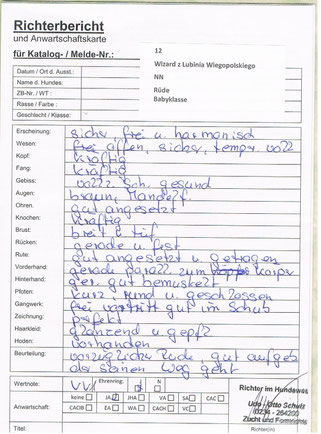 Richterbericht
und Anwartschaftskarte
für Katalog- / Melde-Nr.: 12
Datum / Ort d. Ausst.: Wizard z Lubinia Wiegopolskiego
Name d. Hundes: NN
ZB-Nr. / WT : Rüde
Rasse / Farbe : Babyklasse
Geschlecht / Klasse:
Erscheinung: sicher, frei u. harmonisch
Wesen: frei offen, sicher, temper. voll
Kopf: kräftig
Fang: kräftig
Gebiss: vollz. Sch. gesund
Augen: braun, Mandelf.
Ohren: gut angesetzt
Knochen: kräftig
Brust: breit u tief
Rücken: gerade u fest
Rute: gut angesetzt u getragen
Vorderhand: gerade parall. zum Körper
Hinterhand: gut bemuskelt
Pfoten: kurz, rund u geschlossen
Gangwerk: frei vortritt gut im Schub
Zeichnung: perfekt
Haarkleid: glänzend u gepfl
Hoden: vorhanden
Beurteilung: vorzüglicher Rüde, gut aufgeb
seinen Weg geht
Wertnote: VV1 Ehrenring:
Anwartschaft: keine JA JHA VA SA CAC
CACIB EA WA CACB VC
Richter im Hundewes
Udo - Otto Schulz
(0234 - 264200
Zucht und Formrichter